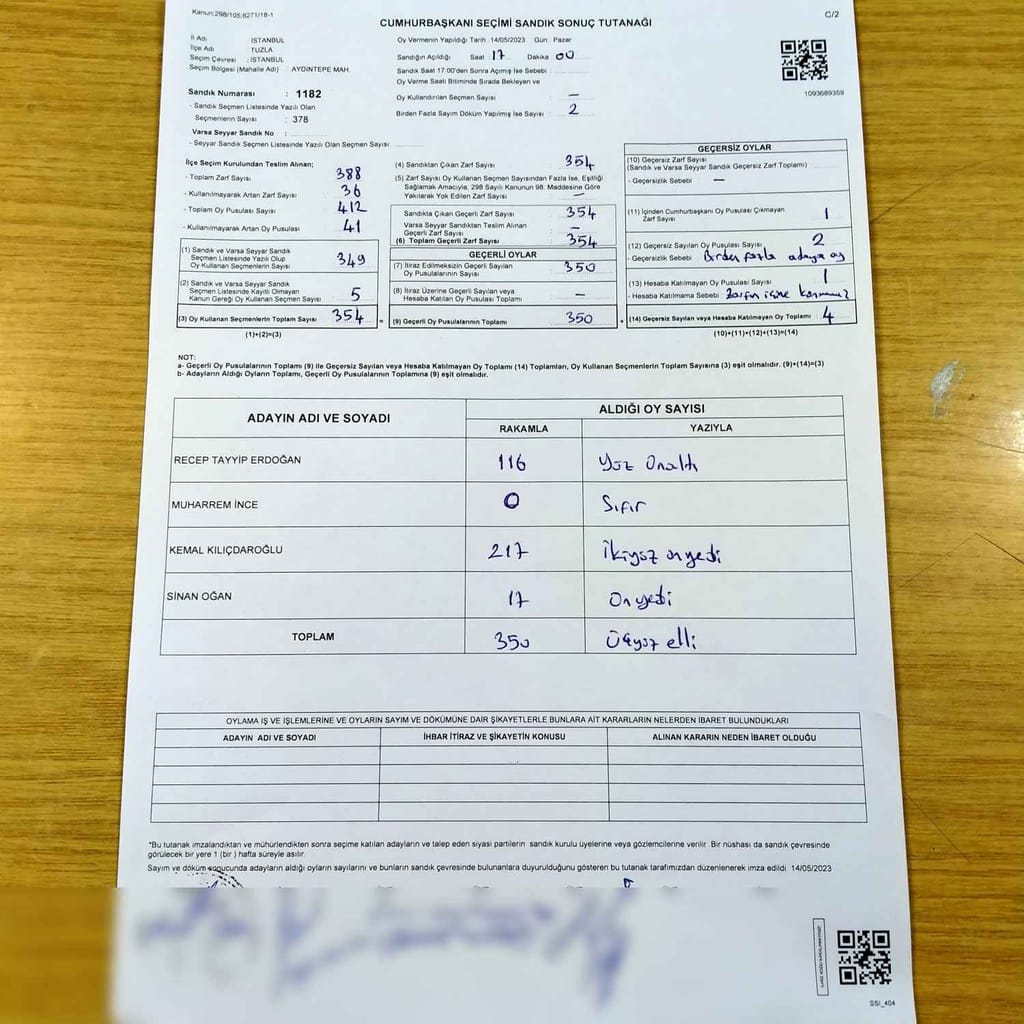 Kanun:298/105,6271/18-1
C/2
CUMHURBAŞKANI SEÇİMİ SANDIK SONUÇ TUTANAĞI
İl Adı : İSTANBUL
İlçe Adı : TUZLA
Seçim Çevresi : İSTANBUL
Seçim Bölgesi (Mahalle Adı) : AYDINTEPE MAH.
Sandık Numarası : 1182
- Sandık Seçmen Listesinde Yazılı Olan
Seçmenlerin Sayısı : 378
Varsa Seyyar Sandık No :
- Seyyar Sandık Seçmen Listesinde Yazılı Olan Seçmen Sayısı
Oy Vermenin Yapıldığı Tarih :14/05/2023 Gün : Pazar
Sandığın Açıldığı Saat 17 Dakika 00
Sandık Saat 17:00'den Sonra Açımış İse Sebebi :
Oy Verme Saati Bitiminde Sırada Bekleyen ve
Oy Kullandırılan Seçmen Sayısı : —
Birden Fazla Sayım Döküm Yapılmış İse Sayısı : 2
1093689359
İlçe Seçim Kurulundan Teslim Alınan;
- Toplam Zarf Sayısı : 388
- Kullanılmayarak Artan Zarf Sayısı : 36
- Toplam Oy Pusulası Sayısı : 412
- Kullanılmayarak Artan Oy Pusulası : 41
(1) Sandık ve Varsa Seyyar Sandık
Seçmen Listesinde Yazılı Olup
Oy Kullanan Seçmenlerin Sayısı : 349
(2) Sandık ve Varsa Seyyar Sandık
Seçmen Listesinde Kayıtlı Olmayan
Kanun Gereği Oy Kullanan Seçmen Sayısı : 5
(3) Oy Kullanan Seçmenlerin Toplam Sayısı : 354
(1)+(2)=(3)
(4) Sandıktan Çıkan Zarf Sayısı : 354
(5) Zarf Sayısı Oy Kullanan Seçmen Sayısından Fazla İse, Eşitliği
Sağlamak Amacıyla, 298 Sayılı Kanunun 98. Maddesine Göre
Yakılarak Yok Edilen Zarf Sayısı : —
Sandıkta Çıkan Geçerli Zarf Sayısı : 354
Varsa Seyyar Sandıktan Teslim Alınan
Geçerli Zarf Sayısı : —
(6) Toplam Geçerli Zarf Sayısı : 354
GEÇERLİ OYLAR
(7) İtiraz Edilmeksizin Geçerli Sayılan
Oy Pusulalarının Sayısı : 350
(8) İtiraz Üzerine Geçerli Sayılan veya
Hesaba Katılan Oy Pusulası Toplamı : —
= (9) Geçerli Oy Pusulalarının Toplamı : 350 +
GEÇERSİZ OYLAR
(10) Geçersiz Zarf Sayısı
(Sandık ve Varsa Seyyar Sandık Geçersiz Zarf Toplamı)
- Geçersizlik Sebebi : —
(11) İçinden Cumhurbaşkanı Oy Pusulası Çıkmayan
Zarf Sayısı : 1
(12) Geçersiz Sayılan Oy Pusulası Sayısı : 2
- Geçersizlik Sebebi : Birden fazla adaya oy
(13) Hesaba Katılmayan Oy Pusulası Sayısı : 1
- Hesaba Katılmama Sebebi : Zarfın içine
(14) Geçersiz Sayılan veya Hesaba Katılmayan Oy Toplamı : 4
(10)+(11)+(12)+(13)=(14)
NOT:
a- Geçerli Oy Pusulalarının Toplamı (9) ile Geçersiz Sayılan veya Hesaba Katılmayan Oy Toplamı (14) Toplamları, Oy Kullanan Seçmenlerin Toplam Sayısına (3) eşit olmalıdır. (9)+(14)=(3)
b- Adayların Aldığı Oyların Toplamı, Geçerli Oy Pusulalarının Toplamına (9) eşit olmalıdır.
ADAYIN ADI VE SOYADI ALDIĞI OY SAYISI
RAKAMLA YAZIYLA
RECEP TAYYİP ERDOĞAN 116 Yüz Onaltı
MUHARREM İNCE 0 Sıfır
KEMAL KILIÇDAROĞLU 217 İkiyüz onyedi
SİNAN OĞAN 17 Onyedi
TOPLAM 350 Üçyüz elli
OYLAMA İŞ VE İŞLEMLERİNE VE OYLARIN SAYIM VE DÖKÜMÜNE DAİR ŞİKAYETLERLE BUNLARA AİT KARARLARIN NELERDEN İBARET BULUNDUKLARI
ADAYIN ADI VE SOYADI İHBAR İTİRAZ VE ŞİKAYETİN KONUSU ALINAN KARARIN NEDEN İBARET OLDUĞU
*Bu tutanak imzalandıktan ve mühürlendikten sonra seçime katılan adayların ve talep eden siyasi partilerin sandık kurulu üyelerine veya gözlemcilerine verilir. Bir nüshası da sandık çevresinde
görülecek bir yere 1 (bir ) hafta süreyle asılır.
Sayım ve döküm sonucunda adayların aldığı oyların sayılarını ve bunların sandık çevresinde bulunanlara duyurulduğunu gösteren bu tutanak tarafımızdan düzenlenerek imza edildi. 14/05/2023
SSI_404